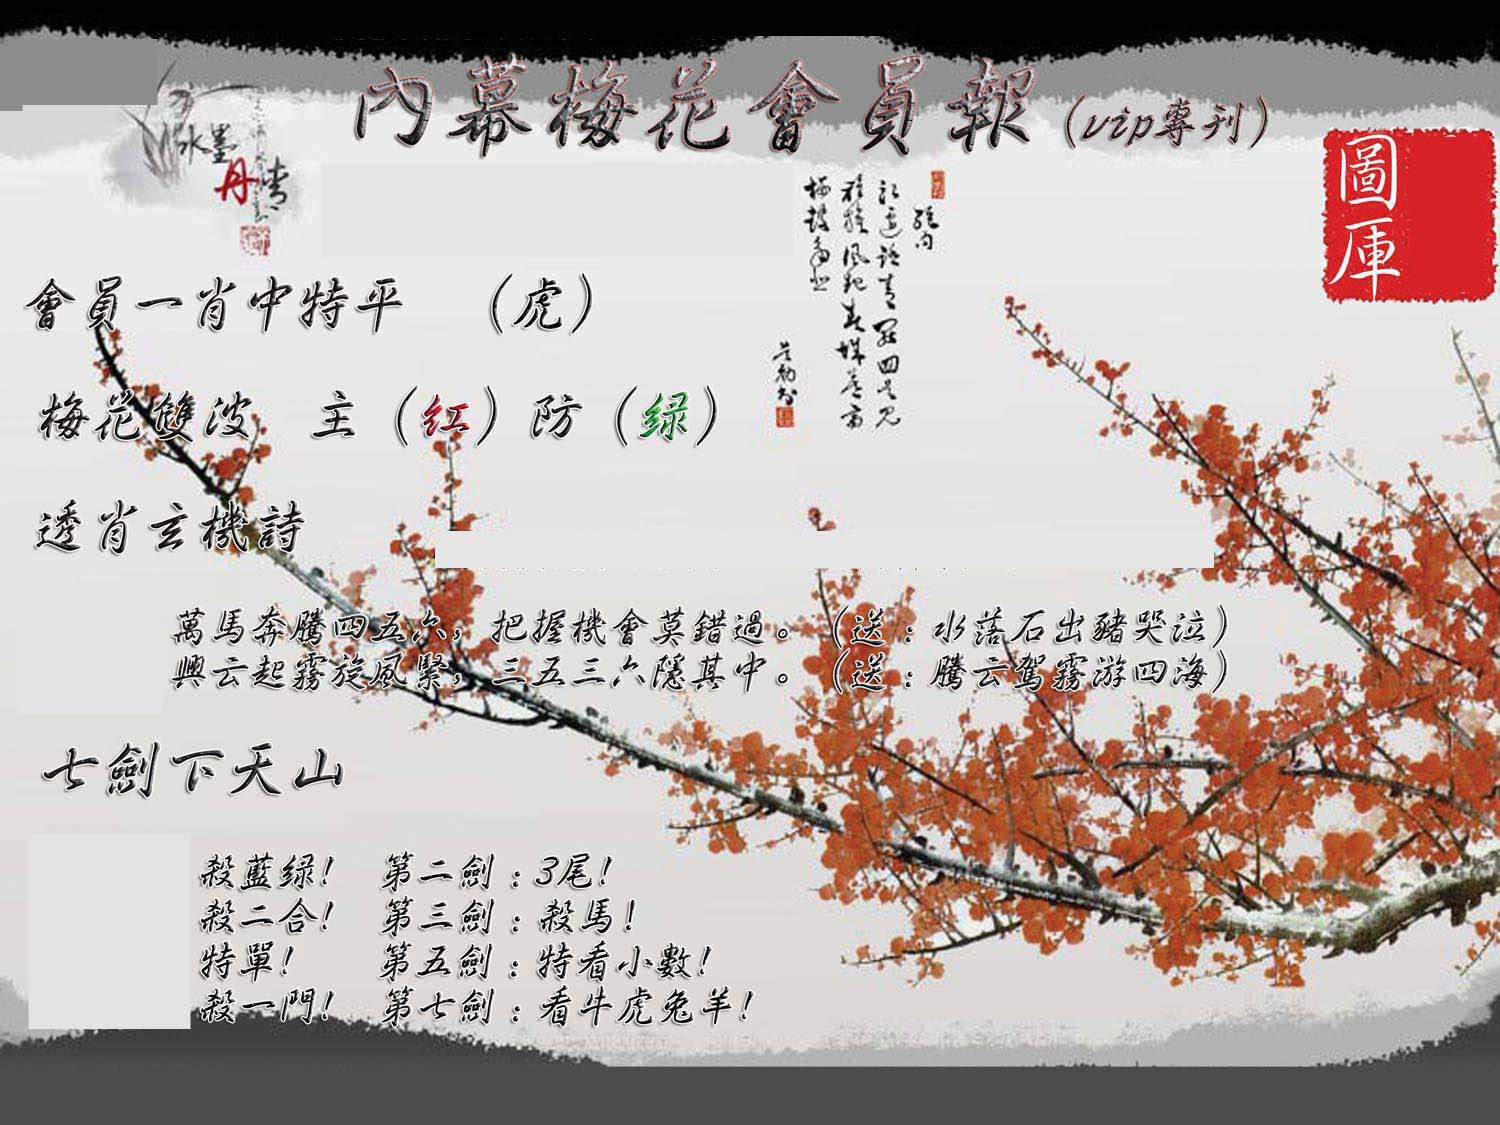 內幕梅花會員報（vip專刊）
水墨
丹情
圖庫
會員一肖中特平　（虎）
梅花雙波　主（紅）防（绿）
透肖玄機詩
萬馬奔騰四五六，把握機會莫錯過。（送：水落石出豬哭泣）
興云起霧旋風緊，三五三六隱其中。（送：騰云駕霧游四海）
七劍下天山
殺藍绿！　第二劍：3尾！
殺二合！　第三劍：殺馬！
特單！　第五劍：特看小數！
殺一門！　第七劍：看牛虎兔羊！